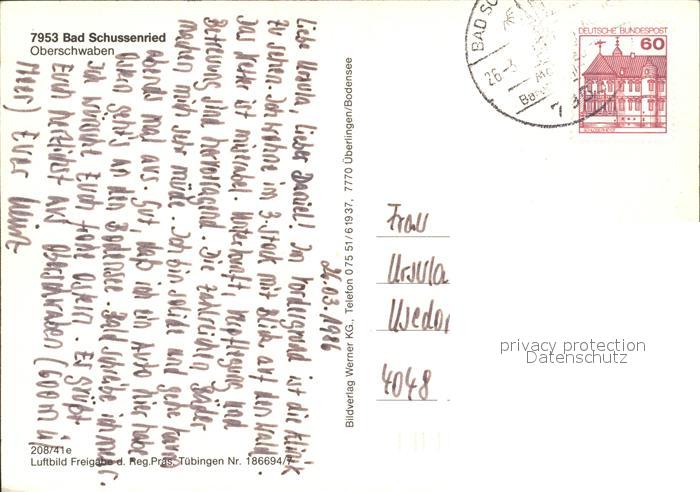 7953 Bad Schussenried
Oberschwaben
26.03.1986
Liebe Ursula, lieber Daniel! Im Vordergrund ist die Klinik
zu sehen. Ich wohne im 3. Stock mit Blick auf den Wald.
Das Wetter ist miserabel. Unterkunft, Verpflegung und
Betreuung sind hervorragend. Die zahlreichen Bäder
machen mich sehr müde. Ich bin solide und gehe kaum
abends mal aus. Gut, daß ich ein Auto hier habe
geht's an den Bodensee. Bald schreibe ich mehr.
Ich wünsche Euch frohe Ostern. Es grüßt
Euch herzlichst aus Oberschwaben (600 m ü
Meer) Euer
208/41e
Luftbild Freigabe d. Reg.Präs. Tübingen Nr. 186694/7
Bildverlag Werner KG., Telefon 0 75 51/6 19 37, 7770 Überlingen/Bodensee
BAD SC
26.-3
795
DEUTSCHE BUNDESPOST
60
Frau
Ursula
Usedo
4048
privacy protection
Datenschutz